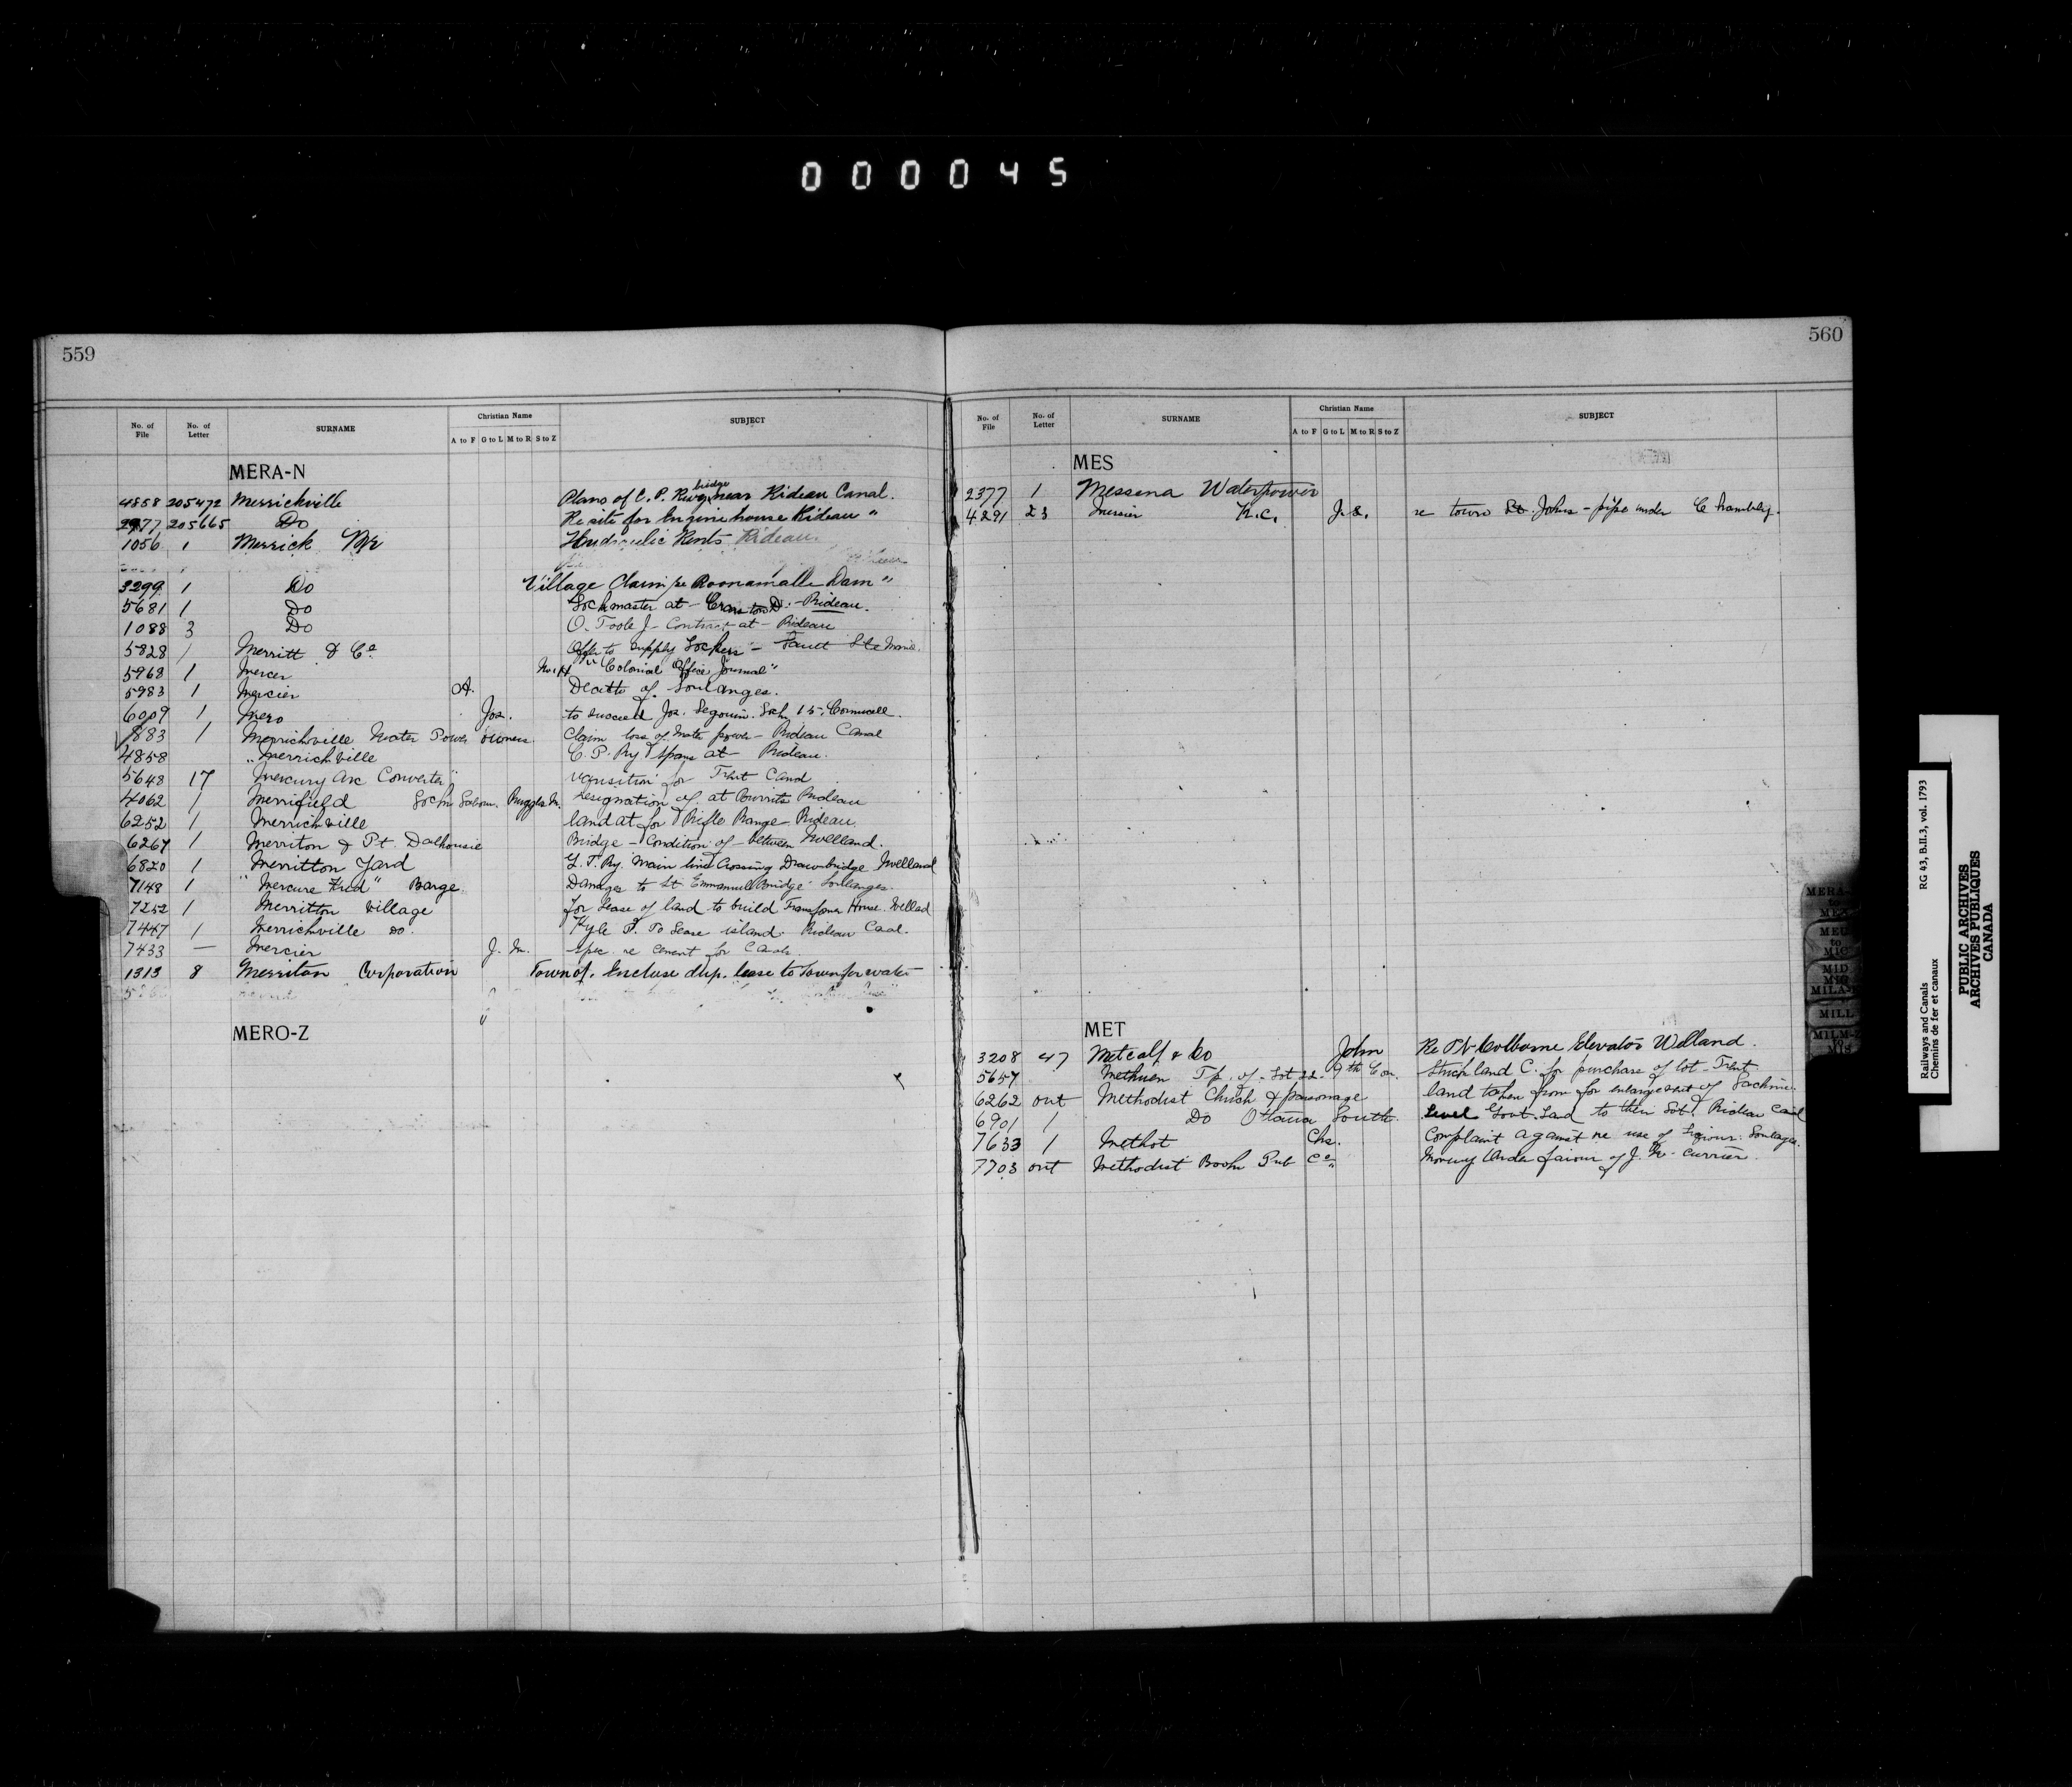 000045
559
No. of File No. of Letter SURNAME Christian Name A to F G to L M to R S to Z SUBJECT
MERA-N
4858 205472 Merrickville Plans of C. P. Rwy bridge near Rideau Canal.
2977 205665 Do Re site for Engine house Rideau "
1056 1 Merrick Mr Hydraulic Rents Rideau
3299 1 Do Village Claim re Poonamalle Dam "
5681 1 Do Lockmaster at - Cranston D. - Rideau.
1088 3 Do O. Toole J - Contract at - Rideau
5828 1 Merritt & Co. Offer to supply Lockers - Sault Ste Marie.
5968 1 Mercer "Colonial Office Journal"
5983 1 Mercier A. Death of. Soulanges.
6009 1 Mero Jos. to succeed Jos. Segouin. Lock 15, Cornwall.
1883 1 Merrickville Water Power owners Claim loss of Water power - Rideau Canal
4858 " Merrickville C. P. Ry spans at - Rideau.
5648 17 "Mercury Arc Converter" requisition for Trent Canal
4062 1 Merrifield Lock Labour. Ruggles M. resignation of. at Burritts Rideau
6252 1 Merrickville land at for Rifle Range - Rideau.
6267 1 Merriton & Pt. Dalhousie Bridge - Condition of - between Welland.
6820 1 Merritton Yard G. T. Ry. Main line Crossing Drawbridge Welland
7148 1 "Mercure Fred" Barge. Damages to St Emmanuel Bridge - Soulanges.
7252 1 Merritton Village for lease of land to build Transformer House. Welland
7447 1 Merrickville Do. Kyle P. To Lease island. Rideau Canal.
7433 — Mercier J. M. Spec. re cement for Canals
1313 8 Merriton Corporation Town of. Enclose dup. lease to Town for water
MERO-Z
560
No. of File No. of Letter SURNAME Christian Name A to F G to L M to R S to Z SUBJECT
MES
2377 1 Messena Waterpower
4291 23 Messier K.C. J.S. re town St. Johns - pipe under Chambly.
MET
3208 47 Metcalf & Co John Re Pt Colborne Elevator Welland.
5657 Methuen Tp. of - Lot 22 - 9th Con. Strickland C. for purchase of lot - Trent
6262 out Methodist Church & parsonage land taken from for enlargement of Lachine
6901 1 Do Ottawa South. Level Govt. Land to their Lot Rideau Canal
7633 1 Methot Chs. Complaint against re use of Soulanges.
7703 out Methodist Book Pub Co. Money Order favour of J. W. Currier.
MERA-
MEU to MIC
MID
MILA-
MILL
RG 43, B.II.3, vol. 1793
Railways and Canals
Chemins de fer et canaux
PUBLIC ARCHIVES
ARCHIVES PUBLIQUES
CANADA